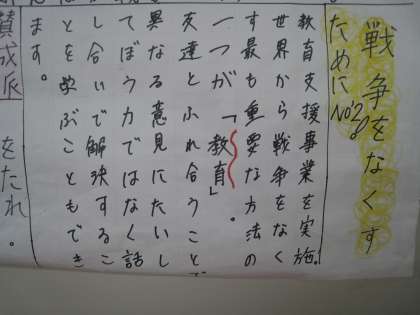 戦争をなくす
ためにNo.2
教育支援事業を実施。
世界から戦争をなく
す最も重要な方法の
一つが「教育」。
友達とふれ合うことで
異なる意見にたいし
てぼう力ではなく話
し合いで解決するこ
とを学ぶこともでき
ます。
賛成派をたれ。